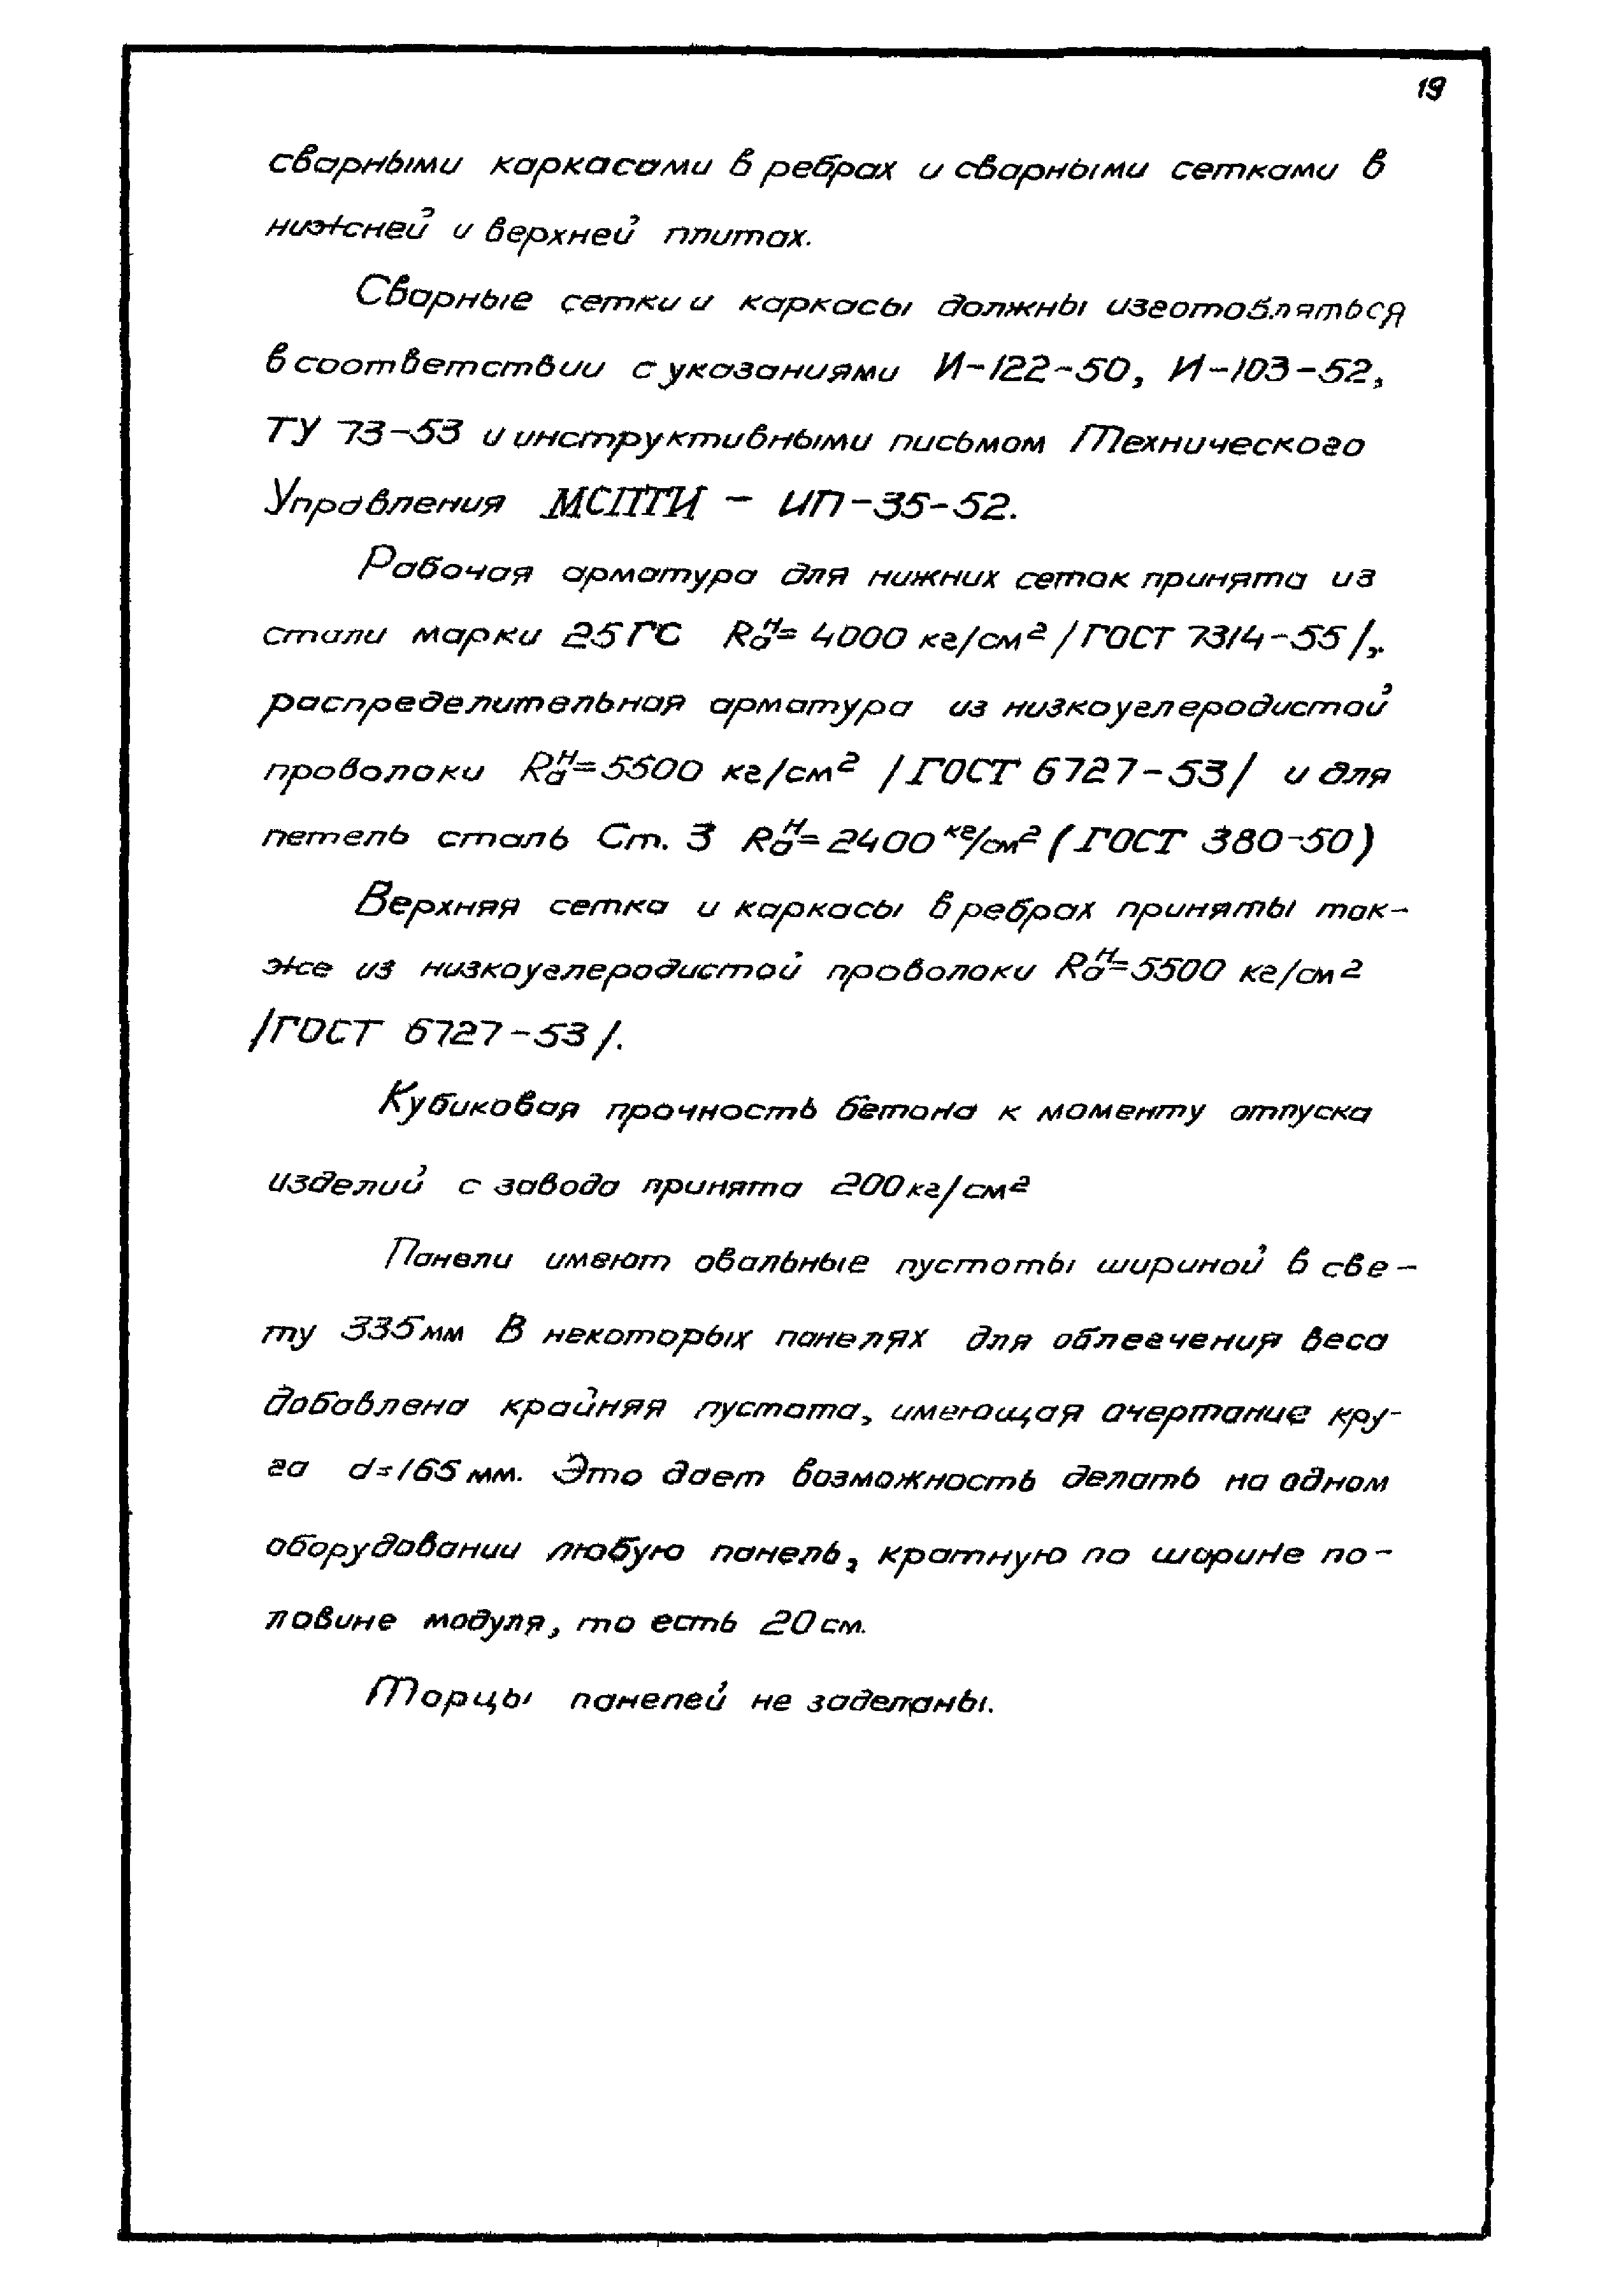 19
сварными каркасами в ребрах и сварными сетками в
нижней и верхней плитах.
Сварные сетки и каркасы должны изготовляться
в соответствии с указаниями И-122-50, И-103-52,
ТУ 73-53 и инструктивными письмом Технического
Управления МСПТИ - ИП-35-52.
Рабочая арматура для нижних сеток принята из
стали марки 25ГС Rаᴴ= 4000 кг/см² /ГОСТ 7314-55/,
распределительная арматура из низкоуглеродистой
проволоки Rаᴴ=5500 кг/см² /ГОСТ 6727-53/ и для
петель сталь Ст. 3 Rаᴴ=2400 кг/см² (ГОСТ 380-50)
Верхняя сетка и каркасы в ребрах приняты так-
же из низкоуглеродистой проволоки Rаᴴ=5500 кг/см²
/ГОСТ 6727-53/.
Кубиковая прочность бетона к моменту отпуска
изделий с завода принята 200кг/см²
Панели имеют овальные пустоты шириной в све-
ту 335мм В некоторых панелях для облегчения веса
добавлена крайняя пустота, имеющая очертание кру-
га d=165 мм. Это дает возможность делать на одном
оборудовании любую панель, кратную по ширине по-
ловине модуля, то есть 20см.
Торцы панелей не заделаны.